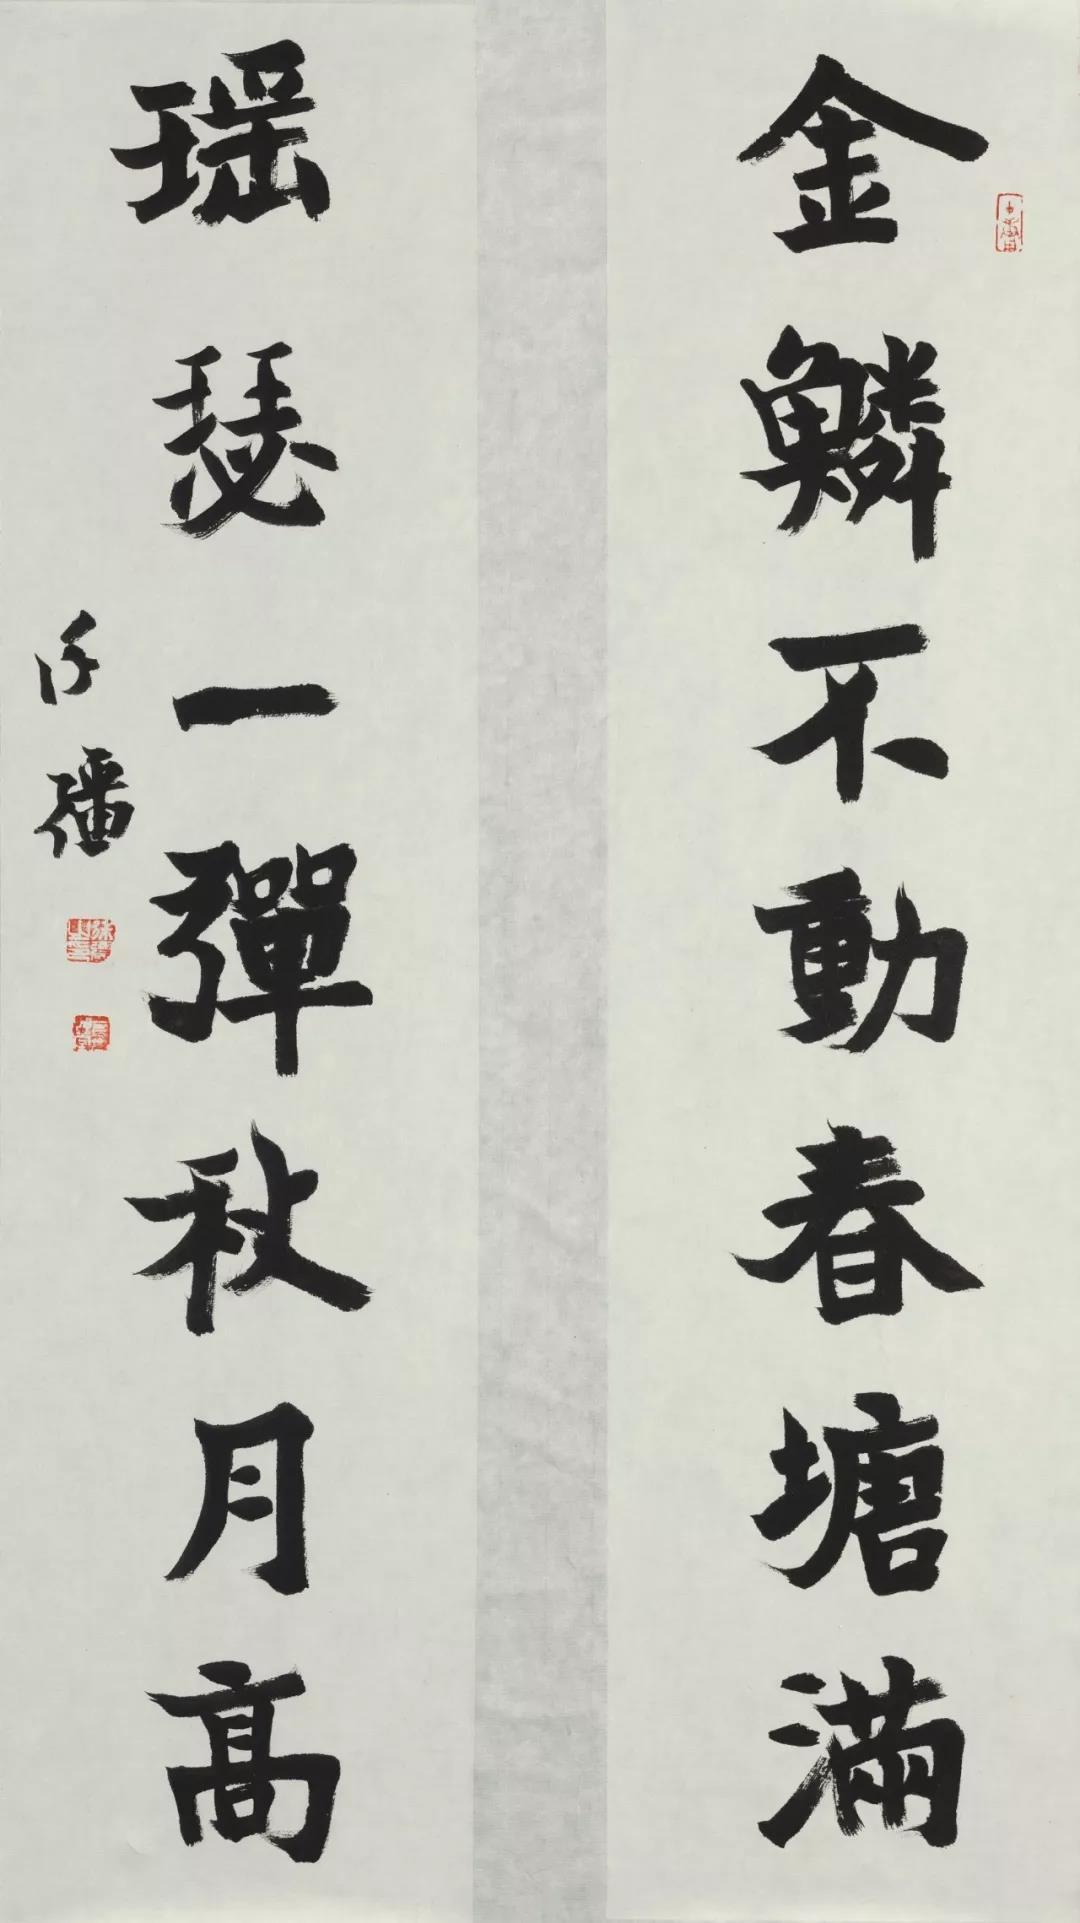 金鱗不動春塘滿
瑶瑟一彈秋月高